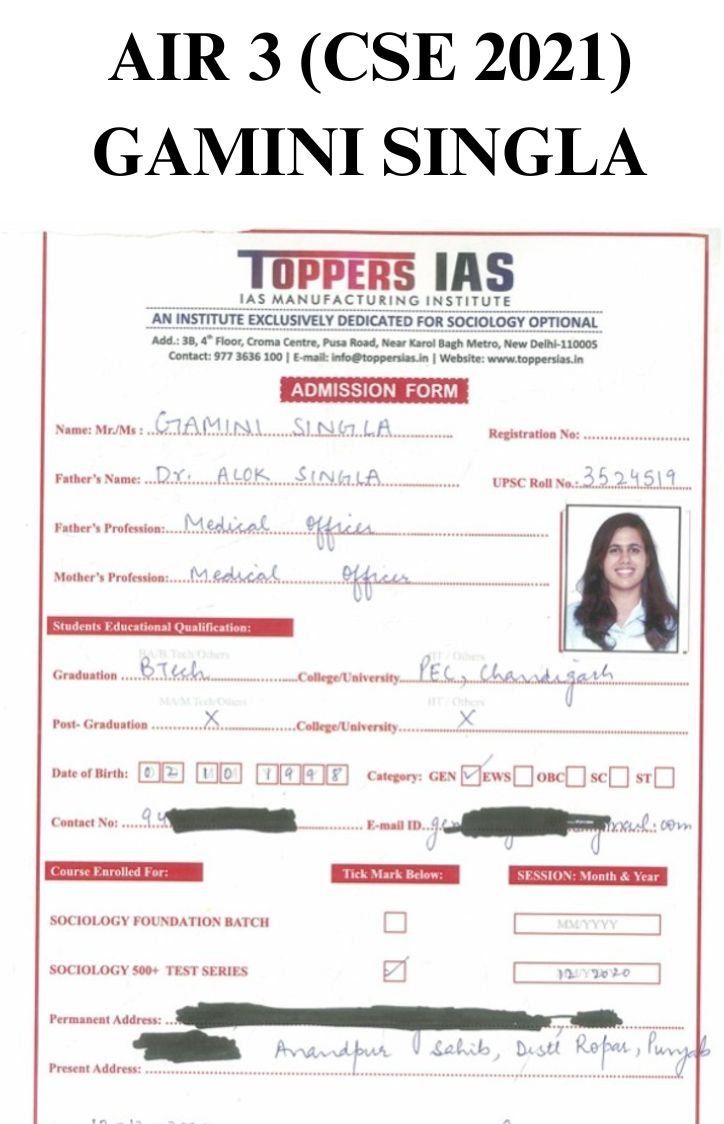 AIR 3 (CSE 2021)
GAMINI SINGLA
TOPPERS IAS
IAS MANUFACTURING INSTITUTE
AN INSTITUTE EXCLUSIVELY DEDICATED FOR SOCIOLOGY OPTIONAL
Add.: 3B, 4th Floor, Croma Centre, Pusa Road, Near Karol Bagh Metro, New Delhi-110005
Contact: 977 3636 100 | E-mail: info@toppersias.in | Website: www.toppersias.in
ADMISSION FORM
Name: Mr./Ms : GAMINI SINGLA Registration No:
Father's Name: Dr. ALOK SINGLA UPSC Roll No.: 3524519
Father's Profession: Medical Officer
Mother's Profession: Medical Officer
Students Educational Qualification:
BA/B.Tech/Others IIT / Others
Graduation BTech College/University PEC, Chandigarh
MA/M.Tech/Others IIT / Others
Post- Graduation X College/University X
Date of Birth: 02 10 1998 Category: GEN EWS OBC SC ST
Contact No: 94 E-mail ID gmail.com
Course Enrolled For: Tick Mark Below: SESSION: Month & Year
SOCIOLOGY FOUNDATION BATCH MM/YYYY
SOCIOLOGY 500+ TEST SERIES 12/2020
Permanent Address:
Anandpur Sahib, Distt Ropar, Punjab
Present Address: